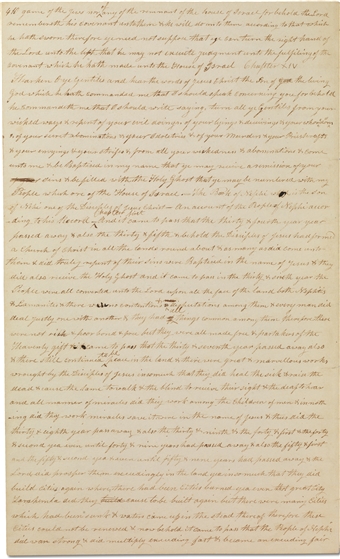 game of the Jews nor any of the remnant of the house of Israel for behold the Lord
remembereth his covenant unto them & he will do unto them according to that which
he hath sworn therefore ye need not suppose that ye can turn the right hand of
the Lord unto the left that he may not execute judgment unto the fulfilling of the
covenant which he hath made unto the House of Israel Chapter XIV
Hearken O ye gentiles and hear the words of Jesus Christ the Son of the living
God which he hath commanded me that I should speak concerning you for behold
he commandeth me that I should write saying turn all ye gentiles from your
wicked ways & repent of your evil doings of your lying & deceivings & of your whoredoms
& of your secret abominations & your idolatries & of your murders & your Priestcrafts
& your envyings & your strifes & from all your wickedness & abominations & come
unto me & be Baptized in my name that ye may receive a remission of your
sins & be filled with the Holy Ghost that ye may be numbered with my
People which are of the House of Israel The Book of Nephi the son
of Nephi one of the Disciples of Jesus Christ an account of the People of Nephi accor
ding to his Record Chapter first And it came to pass that the thirty & fourth year
passed away & also the thirty & fifth & behold the Disciples of Jesus had formed
a Church of Christ in all the lands round about & as many as did come unto
them & did truly repent of their sins were Baptized in the name of Jesus & they
did also receive the Holy Ghost and it came to pass in the thirty & sixth year the
People were all converted unto the Lord upon all the face of the land both Nephites
& Lamanites & there were no contentions & disputations among them & every man did
deal justly one with another & they had all things common among them therefore there
were not rich & poor bond & free but they were all made free & partakers of the
Heavenly gift & it came to pass that the thirty & seventh year passed away also
& there still continued to be peace in the land & there were great & marvellous works
wrought by the Disciples of Jesus insomuch that they did heal the sick & raise the
dead & cause the lame to walk & the blind to receive their sight & the deaf to hear
and all manner of miracles did they work among the children of men & in noth
ing did they work miracles save it were in the name of Jesus & thus did the
thirty & eighth year pass away & also the thirty & ninth & the forty & first & the forty
& second yea even until forty & nine years had passed away & also the fifty & first
and the fifty & second yea even until fifty & nine years had passed away & the
Lord did prosper them exceedingly in the land yea insomuch that they did
build cities again where there had been cities burned yea even that great city
Zarahemla did they cause to be built again but there were many cities
which had been sunk & waters came up in the stead thereof therefore these
cities could not be renewed & now behold it came to pass that the People of Nephi
did wax strong & did multiply exceeding fast & became an exceeding fair